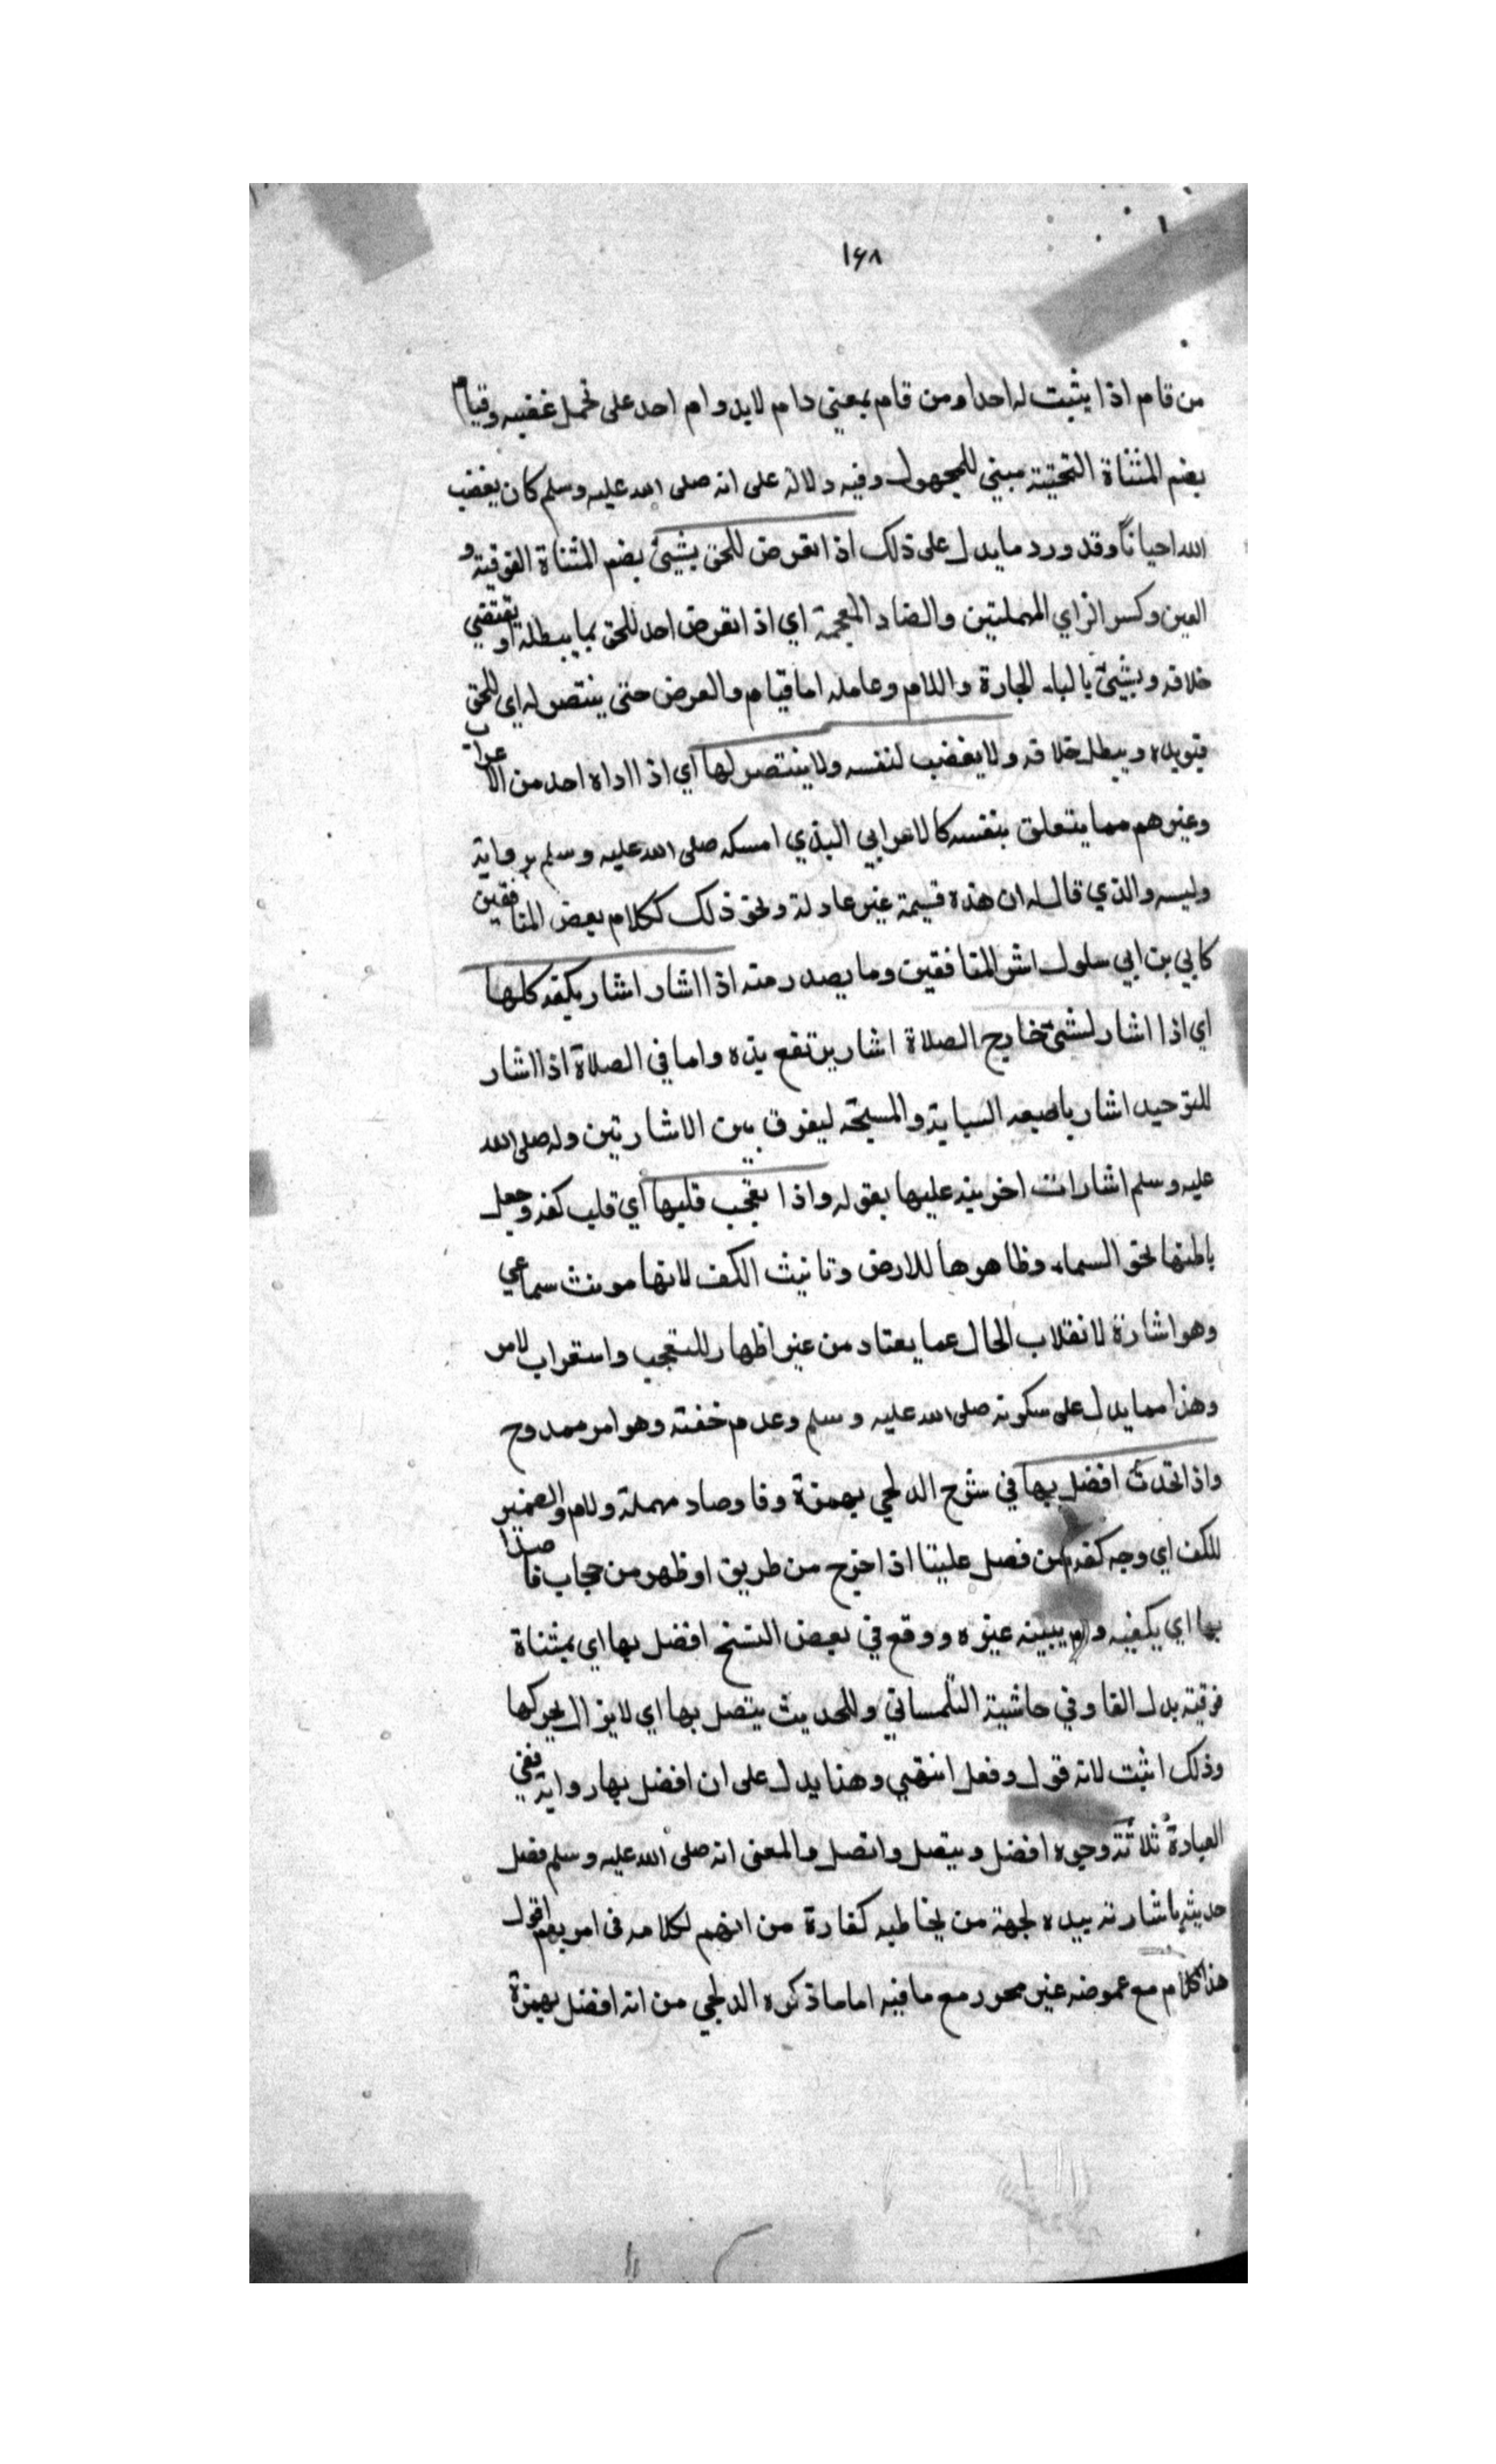 ١٦٨
من قام اذا يثبت له احدا ومن قام بمعني دام لايدوام احد على تحمل غضبه وقيام
بضم المثناة التحتية مبني للمجهول وفيه دلالة على انه صلى الله عليه وسلم كان يغضب
لله احيانًا وقد ورد مايدل على ذلك اذا اتعرض للحق بشيئ بضم المثناة الفوقية و
العين وكسر الراي المهملتين والضاد المعجمة اي اذا اتعرض احد للحق بما يبطله او يقتضي
خلافه وبشيئ بالباء الجارة واللام وعامله اما قيام والعرض حتى ينتصر له اي للحق
فيويده ويبطل خلافه ولا يغضب لنفسه ولا ينتصر لها اي اذا اداه احد من الاعراب
وغيرهم مما يتعلق بنفسه كالاعرابي البذي امسكه صلى الله عليه وسلم بر
وليسه والذي قال له ان هذه قسمة غير عادلة ونحو ذلك ككلام بعض المنافقين
كابي بن ابي سلول اشر المنافقين وما يصدر منه اذا اشار اشار بكفه كلها
اي اذا اشار لشئ خارج الصلاة اشار برتفع يده واما في الصلاة اذا اشار
للتوحيد اشار باصبعه السبابة والمسبحة ليفرق بين الاشارتين وله صلى الله
عليه وسلم اشارات اخر ينه عليها بقوله واذا تعجب قلبها اي قلب كفه وجعل
باطنها نحو السماء وظاهرها للارض وتانيث الكف لانها مونث سماعي
وهو اشارة لانقلاب الحال عما يعتاد من غير اظهار للتعجب واستغراب لامر
وهذا مما يدل على سكونه صلى الله عليه وسلم وعدم خفته وهو امر ممدوح
واذا تحدث افضل بها في شرح الدلجي بهمزة وفا وصاد مهملة ولام والضمير
للكف اي وجه كفه من فصل علينا اذا اخرج من طريق او ظهر من حجاب فا
بها اي يكفيه و يبينه غيره ووقع في بعض النسخ افضل بها اي بمثناة
فوقية بدل الفا وفي حاشية التلمساني وللحديث يتصل بها اي لايزال يحركها
وذلك اثبت لانه قول وفعل انتهي وهنا يدل على ان افضل بها رواية ففي
العبادة ثلاثة وجوه افضل ويتصل واتصل والمعنى انه صلى الله عليه وسلم فصل
حديثه باشارته بيده لجهة من يخاطبه كفارة من لكلامه فى امر يهم اقول
هذا كلام مع غموضه غير محرر مع مافيه اما ماذكره الدلجي من انه افضل بهمزة